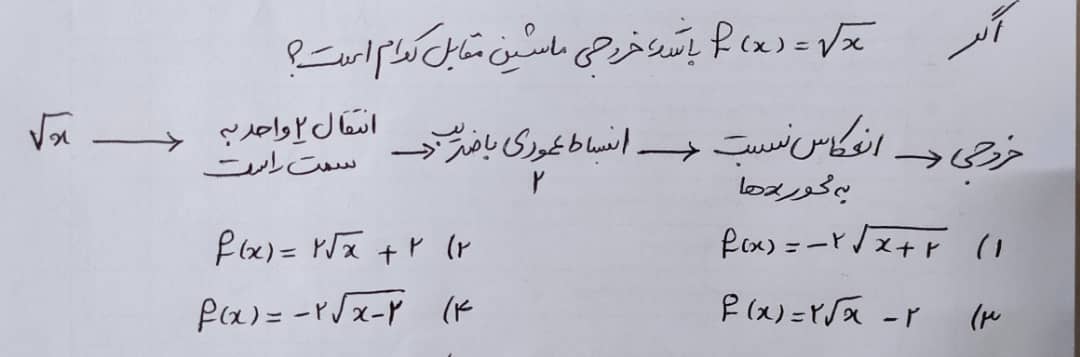 اگر f(x) = √x باشد، خروجی ماشین مقابل کدام است؟
√x → انتقال ۲ واحد به سمت راست → انبساط عمودی با ضریب ۲ → انعکاس نسبت به محور xها → خروجی
۱) f(x) = -۲√(x+۲)
۲) f(x) = ۲√x + ۲
۳) f(x) = ۲√x - ۲
۴) f(x) = -۲√(x-۲)